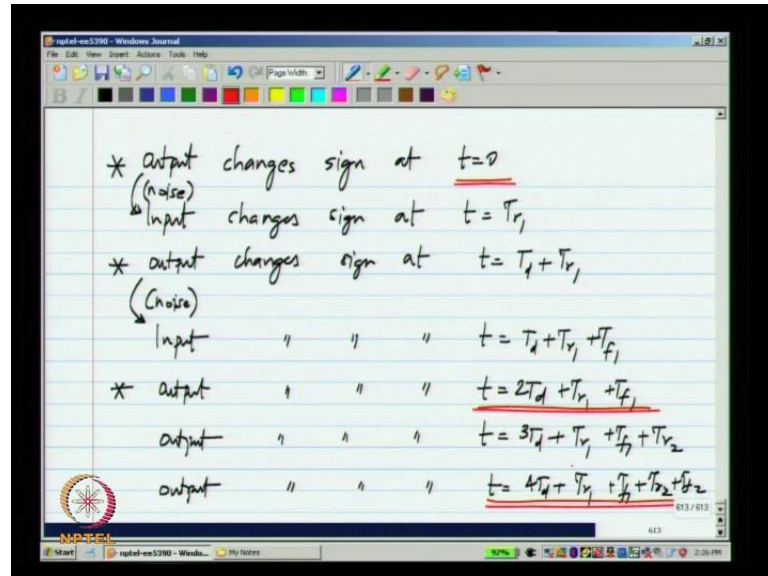 nptel-ee5390 - Windows Journal
File Edit View Insert Actions Tools Help
Page Width
B I
* Output changes sign at t=0
(noise)
Input changes sign at t = Tr1
* output changes sign at t = Td + Tr1
(noise)
Input " " " t = Td + Tr1 + Tf1
* output " " " t = 2Td + Tr1 + Tf1
output " " " t = 3Td + Tr1 + Tf1 + Tr2
output " " " t = 4Td + Tr1 + Tf1 + Tr2 + Tf2
613 / 613
613
NPTEL
Start nptel-ee5390 - Windo... My Notes 92% 2:26 PM